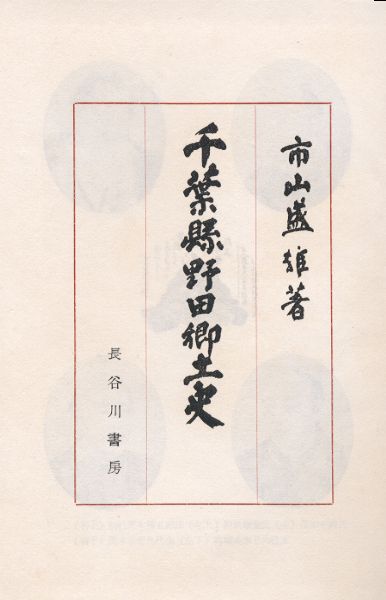 市山盛雄著
千葉縣野田郷土史
長谷川書房